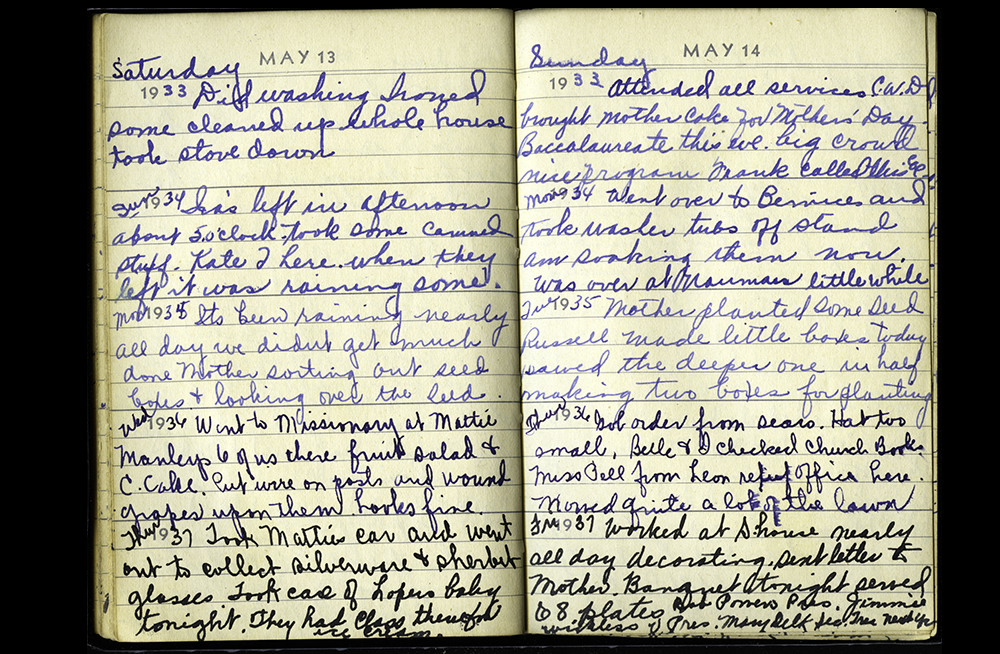 MAY 13
Saturday
1933 Did washing Ironed
some cleaned up whole house
took stove down
Sun 1934 Ira's left in afternoon
about 5 o'clock. Took some canned
stuff. Kate & I here. when they
left it was raining some.
Mon 1935 Its been raining nearly
all day we didnt get much
done Mother sorting out seed
boxes & looking over the seed.
Wed 1936 Went to Missionary at Mattie
Manleys 6 of us there fruit salad &
C. Cake. Put wire on posts and wound
grapes upon them. Looks fine.
Thur 1937 Took Matties car and went
out to collect silverware & sherbet
glasses Took care of Lopers baby
tonight. They had Class
ice cream.
MAY 14
Sunday
1933 Attended all services C.W.D
brought mother Cake for Mothers' Day.
Baccalaureate this eve. big crowd
nice program Frank called this Eve.
Mon 1934 Went over to Bernices and
took washer tubs off stand
am soaking them now.
Was over at Naumans little while
Tue 1935 Mother planted some seed
Russell made little boxes today
sawed the deeper one in half
making two boxes for planting
Thur 1936 Got order from sears. Hat too
small, Belle & I checked Church Books
Miss Bell from Leon office here.
Mowed quite a lot of the lawn
Fri 1937 Worked at S. house nearly
all day decorating. sent letter to
Mother. Banquet tonight served
68 plates Powers Pres. Jimmie
V Pres. Mary Delk Sec. Tres next yr